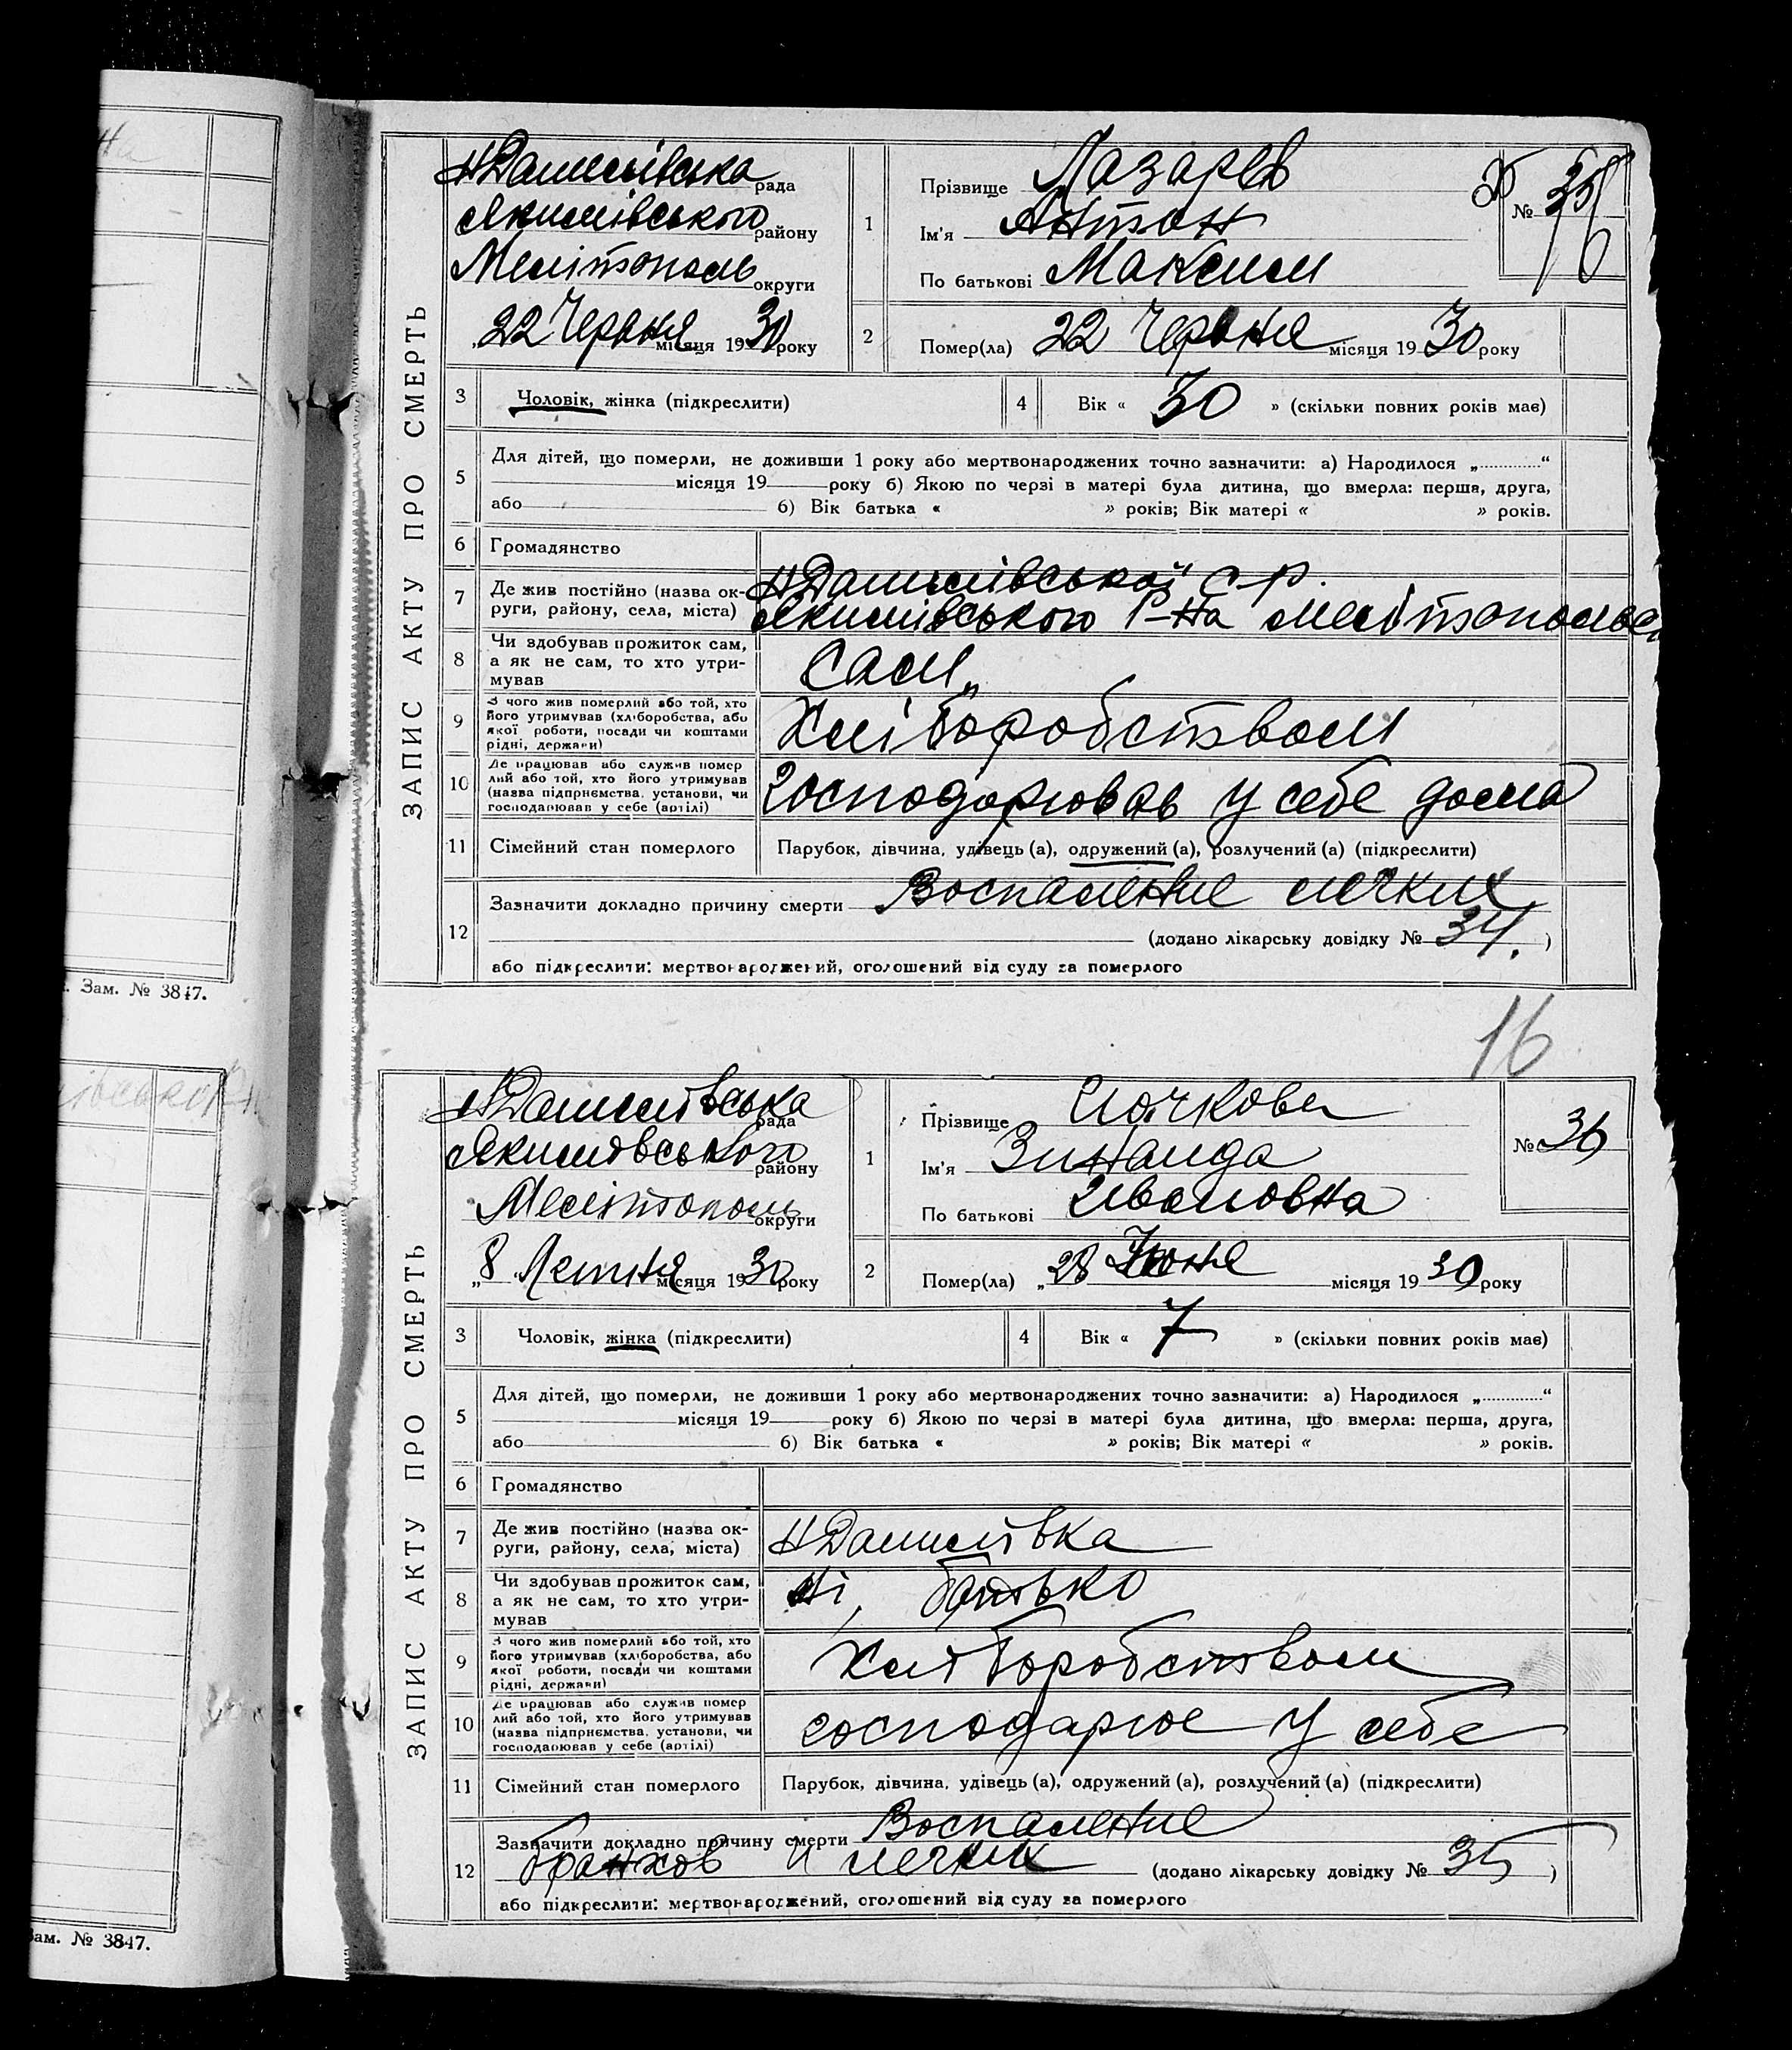 ЗАПИС АКТУ ПРО СМЕРТЬ
Н Данилівська рада
Якимівського району
Мелітополь округи
22 Червня місяця 1930 року
1
Прізвище Лазарев
Ім'я Антон
По батькові Максим
№ 35
2
Помер(ла) 22 Червня місяця 1930 року
3 Чоловік, жінка (підкреслити)
4 Вік « 30 » (скільки повних років має)
5
Для дітей, що померли, не доживши 1 року або мертвонароджених точно зазначити: а) Народилося „ “
місяця 19 року б) Якою по черзі в матері була дитина, що вмерла: перша, друга,
або б) Вік батька « » років; Вік матері « » років.
6 Громадянство
7
Де жив постійно (назва ок-
руги, району, села, міста)
Н Данилівської с.р.
Якимівського Р-на
8
Чи здобував прожиток сам,
а як не сам, то хто утри-
мував
Сам
9
З чого жив померлий або той, хто
його утримував (хліборобства, або
якої роботи, посади чи коштами
рідні, держави)
Хліборобством
10
Де працював або служив помер
лий або той, хто його утримував
(назва підприємства, установи, чи
господарював у себе (артілі)
Господарював у себе дома
11 Сімейний стан померлого
Парубок, дівчина, удівець (а), одружений (а), розлучений (а) (підкреслити)
12
Зазначити докладно причину смерти Воспаление легких
(додано лікарську довідку № 34. )
або підкреслити: мертвонароджений, оголошений від суду за померлого
Зам. № 3847.
16
ЗАПИС АКТУ ПРО СМЕРТЬ
Н Данилівська рада
Якимівського району
Мелітополь округи
„8 Липня місяця 1930 року
1
Прізвище
Ім'я Зинаида
По батькові Ивановна
№ 36
2
Помер(ла) „28 Июня місяця 1930 року
3 Чоловік, жінка (підкреслити)
4 Вік « 7 » (скільки повних років має)
5
Для дітей, що померли, не доживши 1 року або мертвонароджених точно зазначити: а) Народилося „ “
місяця 19 року б) Якою по черзі в матері була дитина, що вмерла: перша, друга,
або б) Вік батька « » років; Вік матері « » років.
6 Громадянство
7
Де жив постійно (назва ок-
руги, району, села, міста)
Н Данилівка
8
Чи здобував прожиток сам,
а як не сам, то хто утри-
мував
Ні, батько
9
З чого жив померлий або той, хто
його утримував (хліборобства, або
якої роботи, посади чи коштами
рідні, держави)
Хліборобством
10
Де працював або служив помер
лий або той, хто його утримував
(назва підприємства, установи, чи
господарював у себе (артілі)
господарює у себе
11 Сімейний стан померлого
Парубок, дівчина, удівець (а), одружений (а), розлучений (а) (підкреслити)
12
Зазначити докладно причину смерти Воспаление
бронхов и легких (додано лікарську довідку № 35 )
або підкреслити: мертвонароджений, оголошений від суду за померлого
Зам. № 3847.